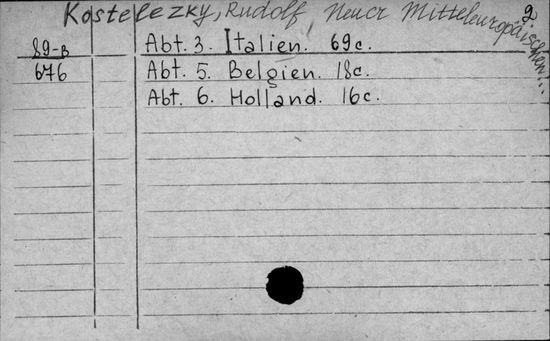 Kostelezky, Rudolf Neuer Mitteleuropäischen...
2
89-B Abt. 3. Italien. 69c.
676 Abt. 5. Belgien. 18c.
Abt. 6. Holland. 16c.